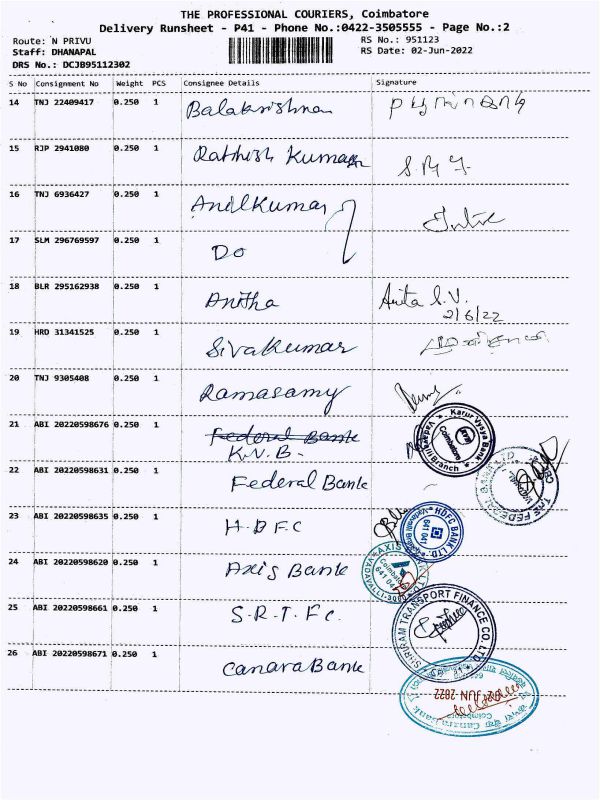 THE PROFESSIONAL COURIERS, Coimbatore
Delivery Runsheet - P41 - Phone No.:0422-3505555 - Page No.:2
Route: N PRIVU
RS No.: 951123
Staff: DHANAPAL
RS Date: 02-Jun-2022
DRS No.: DCJB95112302
S No Consignment No Weight PCS Consignee Details Signature
14 TNJ 22409417 0.250 1 Balakrishnan
15 RJP 2941080 0.250 1 Kumar
16 TNJ 6936427 0.250 1 AnilKumar
17 SLM 296769597 0.250 1 Do
18 BLR 295162938 0.250 1 Anitha Anita S.V.
2/6/22
19 HRD 31341525 0.250 1 Sivakumar
20 TNJ 9305408 0.250 1 Ramasamy
21 ABI 20220598676 0.250 1 Federal Bank
K.V.B-
Karur Vysya Bank
Coimbatore
Branch
22 ABI 20220598631 0.250 1 Federal Bank
THE FEDERAL BANK LTD.
23 ABI 20220598635 0.250 1 HDFC
HDFC BANK LTD.
641 041
24 ABI 20220598620 0.250 1 Axis Bank
AXIS
Coimbatore
25 ABI 20220598661 0.250 1 S.R.T.Fc.
SHRIRAM TRANSPORT FINANCE CO. LTD.
26 ABI 20220598671 0.250 1 Canara Bank
02 JUN 2022
Canara Bank
Coimbatore